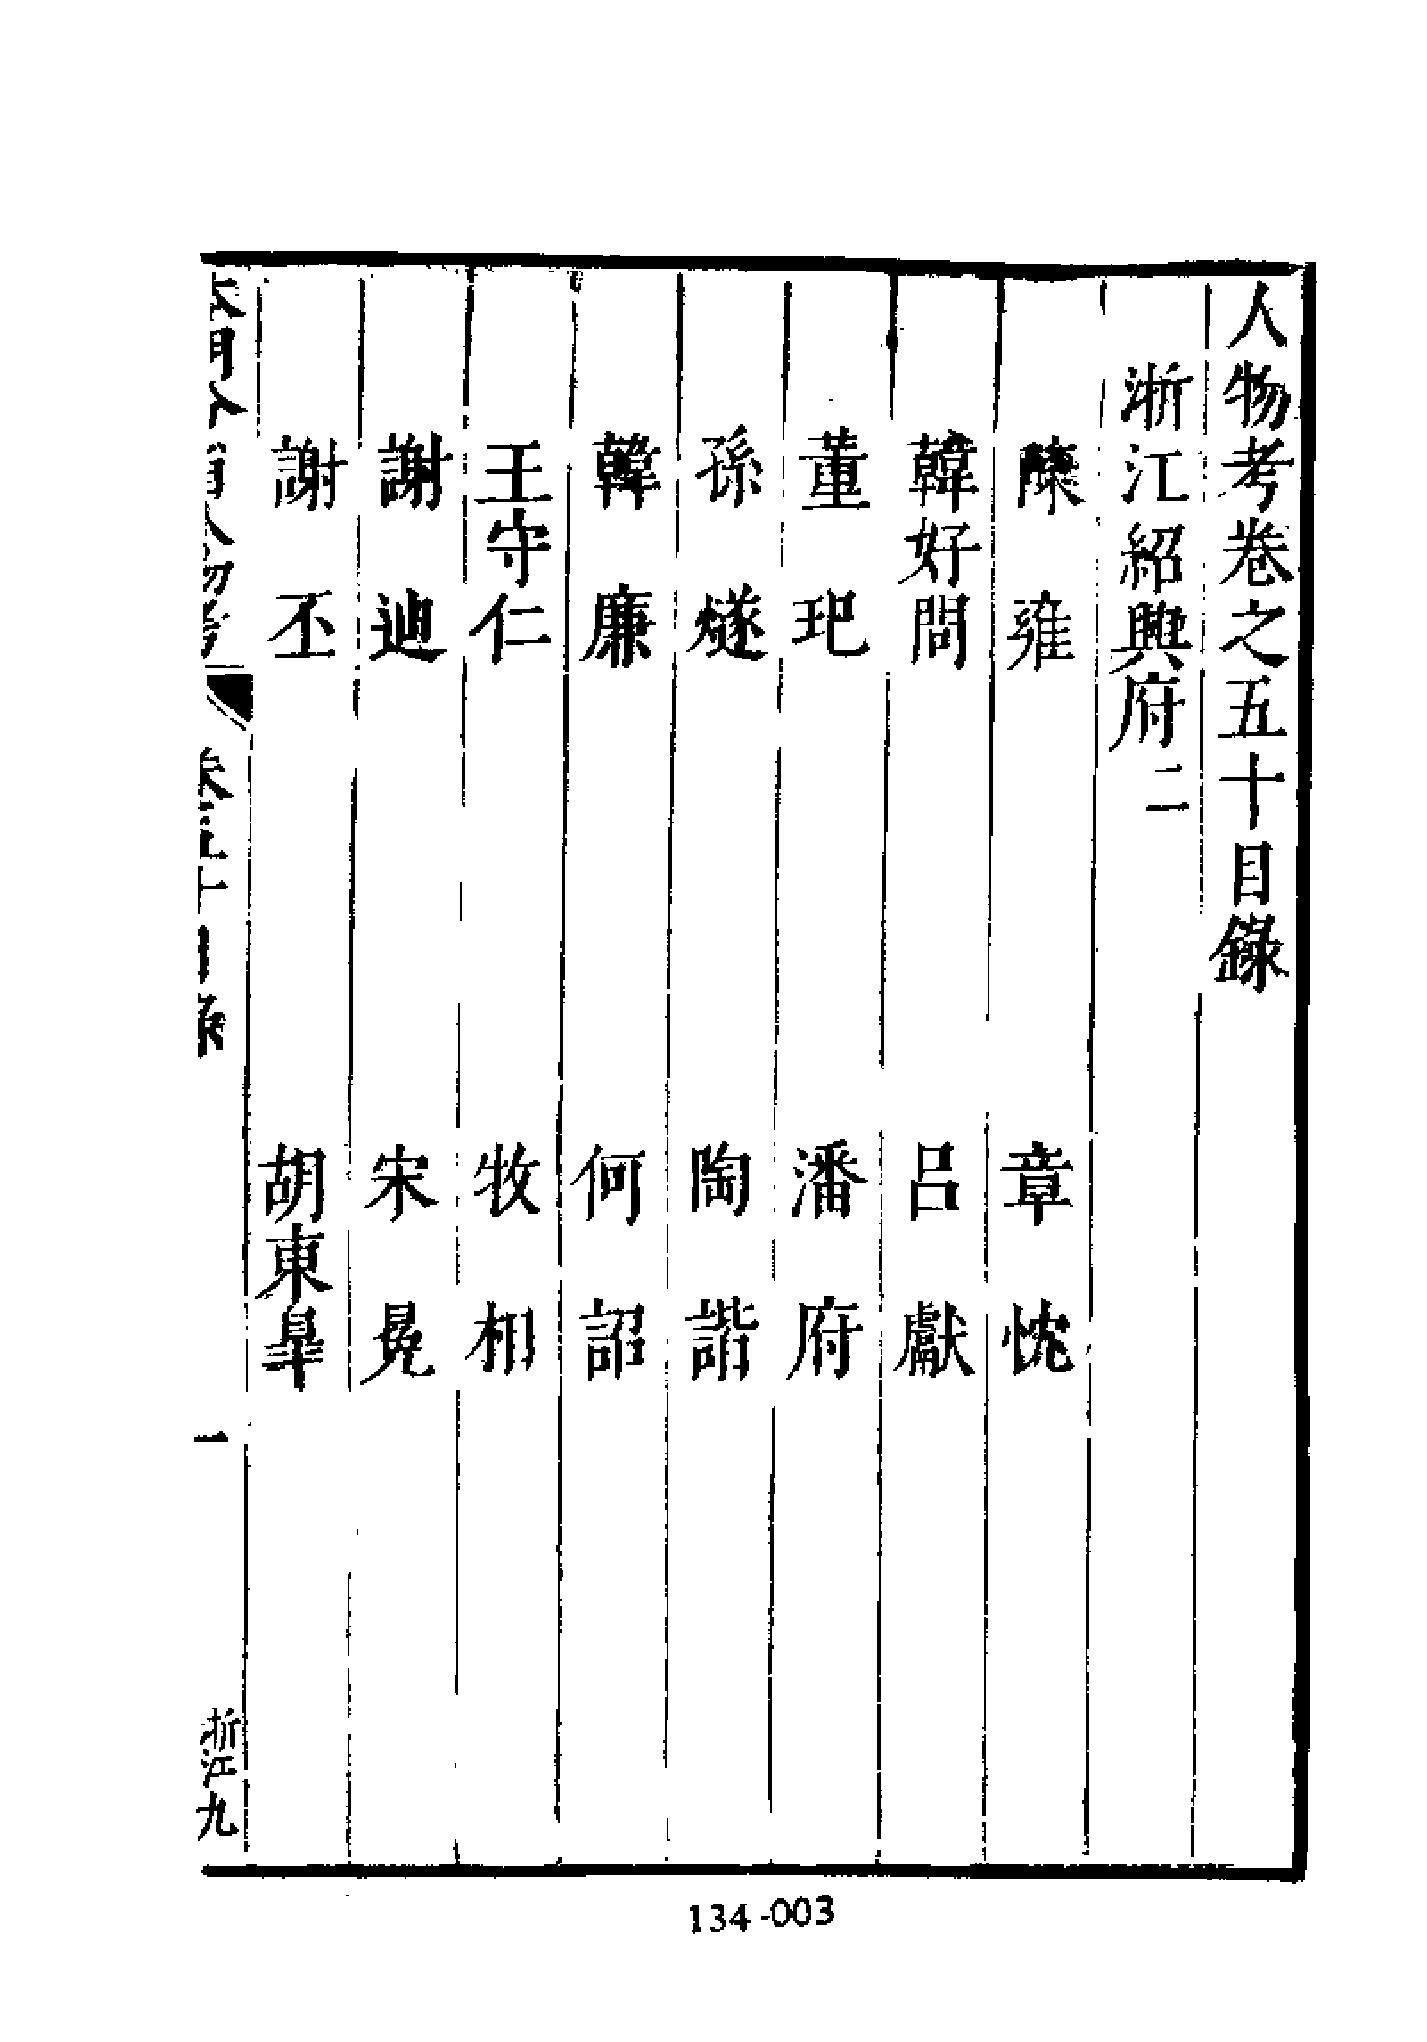 人物考卷之五十目錄
浙江紹興府二
陳雍 章忱
韓好問 呂獻
董玘 潘府
孫燧 陶諧
韓廉 何詔
王守仁 牧相
謝迪 宋冕
謝丕 胡東臯
人物考 卷五十目錄 一 浙江九
134-003